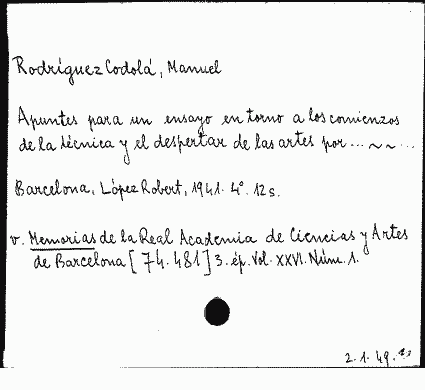 Rodríguez Codolá, Manuel
Apuntes para un ensayo en torno a los comienzos
de la técnica y el despertar de las artes por ... ~ ~ ...
Barcelona, López Robert, 1941. 4º. 12 s.
v. Memorias de la Real Academia de Ciencias y Artes
de Barcelona [74.481] 3. ép. Vol. XXVI. Núm. 1.
2.1.49.